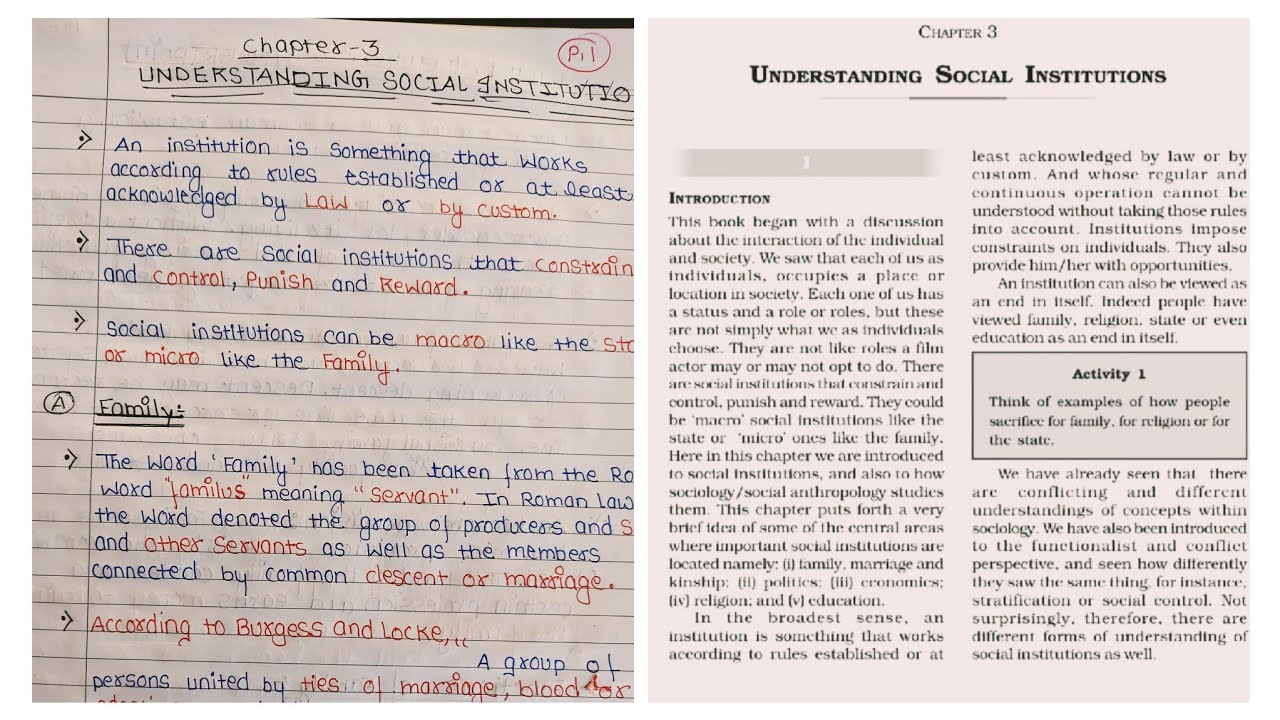 Chapter-3
P,1
UNDERSTANDING SOCIAL INSTITUTIO
An institution is something that works
according to rules established or at least
acknowledged by Law or by custom.
There are social institutions that constrain
and control, Punish and Reward.
Social institutions can be macro like the sta
or micro like the Family.
A Family:-
The word 'Family' has been taken from the Ro
word "familus" meaning "servant". In Roman Law
the word denoted the group of producers and S
and other servants as well as the members
connected by common descent or marriage.
According to Burgess and Locke,,,
A group of
persons united by ties of marriage, blood or
CHAPTER 3
UNDERSTANDING SOCIAL INSTITUTIONS
I
INTRODUCTION
This book began with a discussion
about the interaction of the individual
and society. We saw that each of us as
individuals, occupies a place or
location in society. Each one of us has
a status and a role or roles, but these
are not simply what we as individuals
choose. They are not like roles a film
actor may or may not opt to do. There
are social institutions that constrain and
control, punish and reward. They could
be 'macro' social institutions like the
state or 'micro' ones like the family.
Here in this chapter we are introduced
to social institutions, and also to how
sociology/social anthropology studies
them. This chapter puts forth a very
brief idea of some of the central areas
where important social institutions are
located namely: (i) family, marriage and
kinship; (ii) politics; (iii) economics;
(iv) religion; and (v) education.
In the broadest sense, an
institution is something that works
according to rules established or at
least acknowledged by law or by
custom. And whose regular and
continuous operation cannot be
understood without taking those rules
into account. Institutions impose
constraints on individuals. They also
provide him/her with opportunities.
An institution can also be viewed as
an end in itself. Indeed people have
viewed family, religion, state or even
education as an end in itself.
Activity 1
Think of examples of how people
sacrifice for family, for religion or for
the state.
We have already seen that there
are conflicting and different
understandings of concepts within
sociology. We have also been introduced
to the functionalist and conflict
perspective, and seen how differently
they saw the same thing, for instance,
stratification or social control. Not
surprisingly, therefore, there are
different forms of understanding of
social institutions as well.